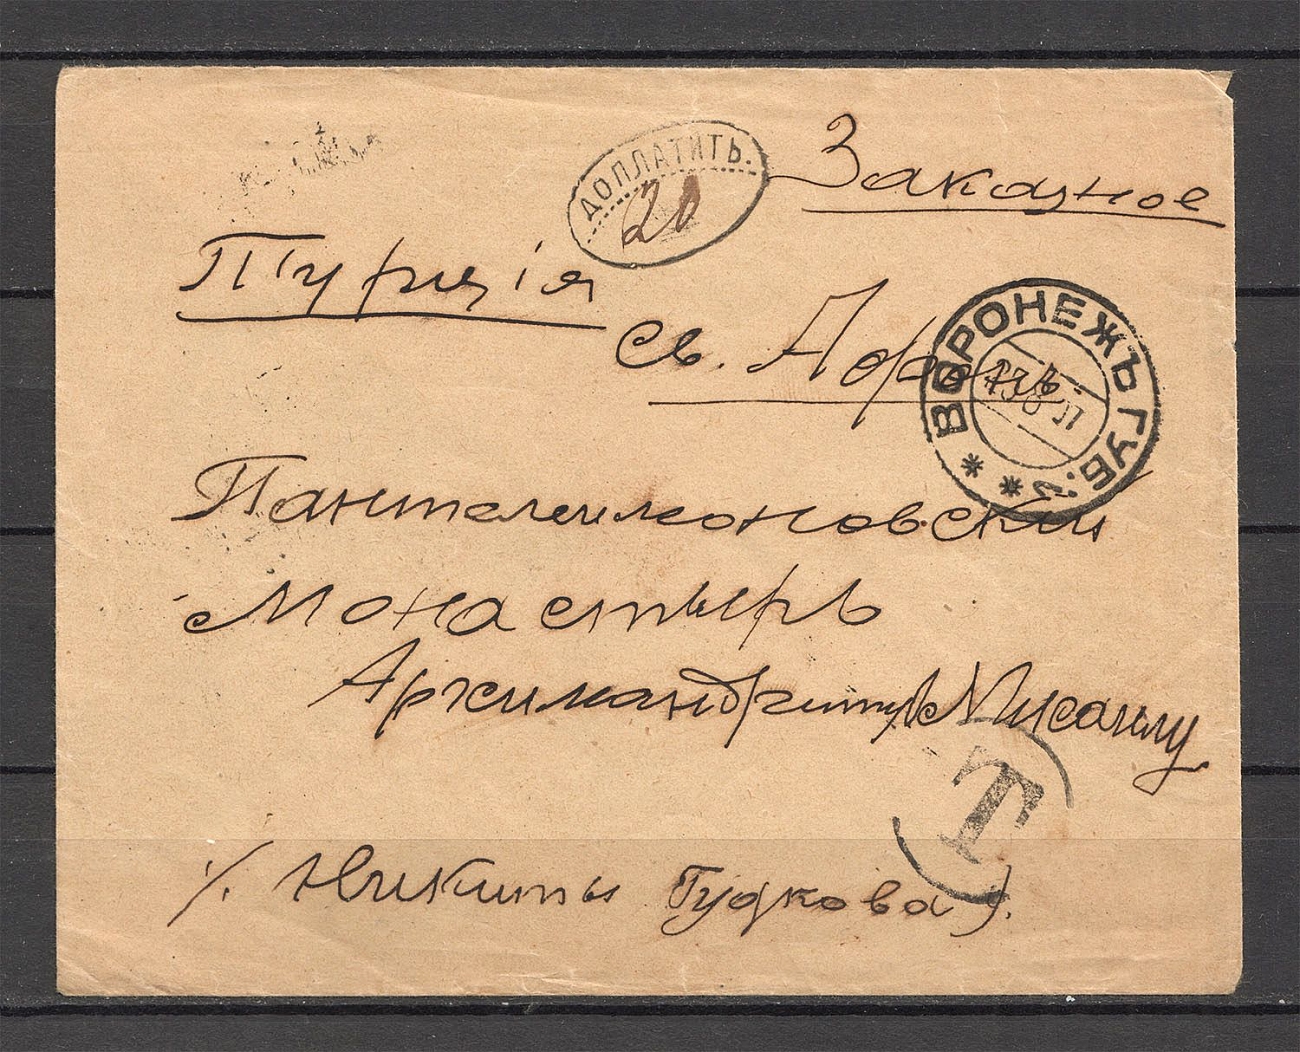 ДОПЛАТИТЬ.
20
Заказное
Турція
Св. Афонъ
ВОРОНЕЖЪ ГУБ.
Пантелеимоновский
Монастырь
Архимандриту Мисаилу
Т
Никиты Гудкова